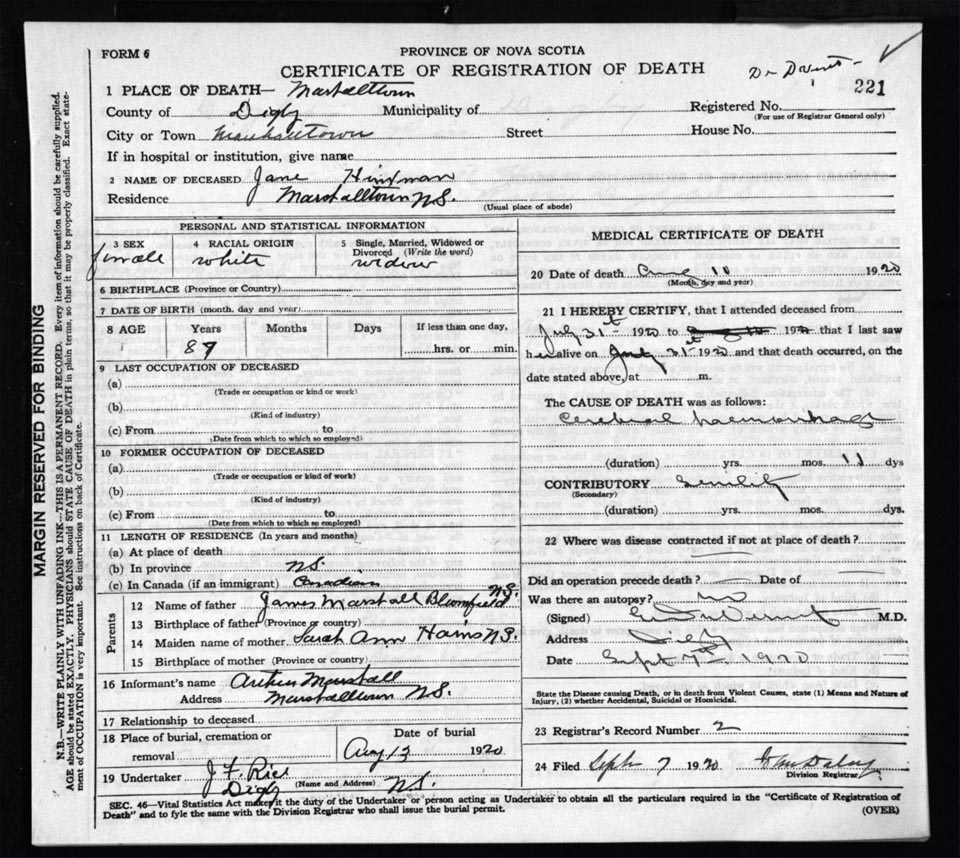 FORM 6
PROVINCE OF NOVA SCOTIA
CERTIFICATE OF REGISTRATION OF DEATH
221
1 PLACE OF DEATH— Marshalltown
County of Digby Municipality of
Registered No.
(For use of Registrar General only)
City or Town Marshalltown Street House No.
If in hospital or institution, give name
2 NAME OF DECEASED Jane Hindman
Residence Marshalltown N.S.
(Usual place of abode)
PERSONAL AND STATISTICAL INFORMATION
3 SEX female
4 RACIAL ORIGIN white
5 Single, Married, Widowed or Divorced (Write the word) widow
6 BIRTHPLACE (Province or Country)
7 DATE OF BIRTH (month, day and year)
8 AGE Years Months Days If less than one day,
89 hrs. or min.
9 LAST OCCUPATION OF DECEASED
(a)
(Trade or occupation or kind or work)
(b)
(Kind of industry)
(c) From to
(Date from which to which so employed)
10 FORMER OCCUPATION OF DECEASED
(a)
(Trade or occupation or kind of work)
(b)
(Kind of industry)
(c) From to
(Date from which to which so employed)
11 LENGTH OF RESIDENCE (In years and months)
(a) At place of death
(b) In province N.S.
(c) In Canada (if an immigrant) Canadian
Parents
12 Name of father James Marshall Bloomfield N.S.
13 Birthplace of father (Province or country)
14 Maiden name of mother Sarah Ann Hains N.S.
15 Birthplace of mother (Province or country)
16 Informant's name Arthur Marshall
Address Marshalltown N.S.
17 Relationship to deceased
18 Place of burial, cremation or removal
Date of burial
Aug 13 1920
19 Undertaker J. F. Rice
(Name and Address)
Digby N.S.
MEDICAL CERTIFICATE OF DEATH
20 Date of death Aug 11 1920
(Month, day and year)
21 I HEREBY CERTIFY, that I attended deceased from
July 31st 1920 to 1920 that I last saw
her alive on July 31st 1920 and that death occurred, on the
date stated above, at m.
The CAUSE OF DEATH was as follows:
Cerebral haemorrhage
(duration) yrs. mos. 11 dys
CONTRIBUTORY Senility
(Secondary)
(duration) yrs. mos. dys.
22 Where was disease contracted if not at place of death?
Did an operation precede death? — Date of —
Was there an autopsy? no
(Signed) M.D.
Address Digby
Date Sept 7th 1920
State the Disease causing Death, or in death from Violent Causes, state (1) Means and Nature of
Injury, (2) whether Accidental, Suicidal or Homicidal.
23 Registrar's Record Number 2
24 Filed Sept 7 1920
Division Registrar
SEC. 46—Vital Statistics Act makes it the duty of the Undertaker or person acting as Undertaker to obtain all the particulars required in the "Certificate of Registration of
Death" and to fyle the same with the Division Registrar who shall issue the burial permit.
(OVER)
MARGIN RESERVED FOR BINDING
N.B.—WRITE PLAINLY WITH UNFADING INK—THIS IS A PERMANENT RECORD. Every item of information should be carefully supplied.
AGE should be stated EXACTLY. PHYSICIANS should STATE CAUSE OF DEATH in plain terms, so that it may be properly classified. Exact state-
ment of OCCUPATION is very important. See instructions on back of Certificate.